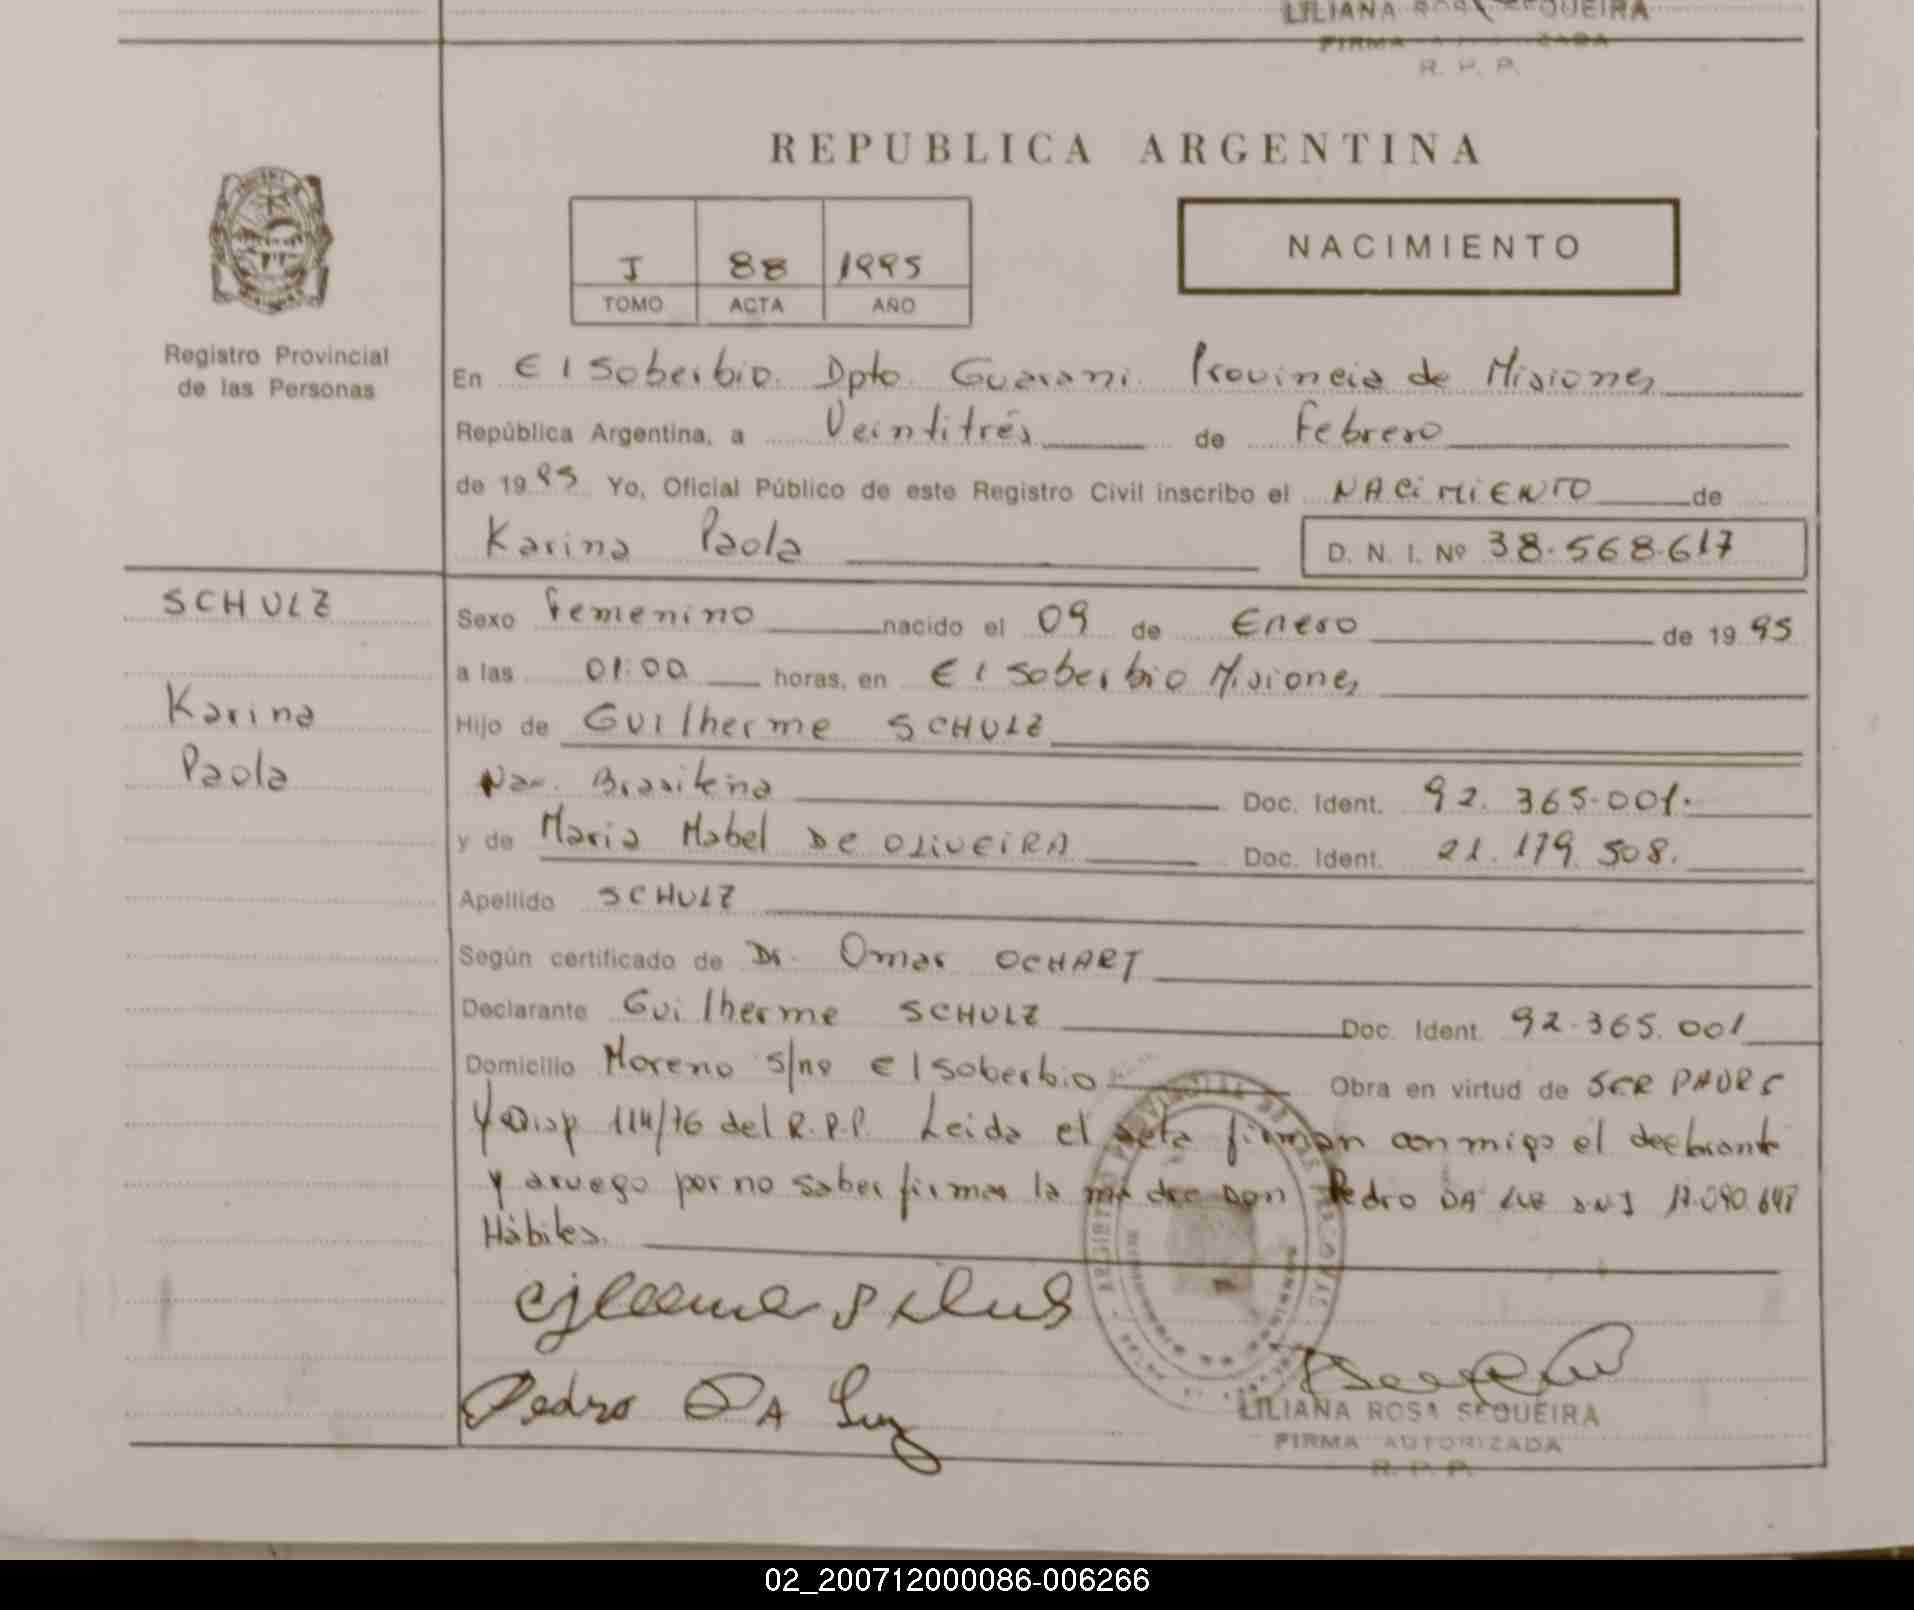 LILIANA ROSA SEQUEIRA
FIRMA AUTORIZADA
R. P. P.
REPUBLICA ARGENTINA
I 88 1995
TOMO ACTA AÑO
NACIMIENTO
Registro Provincial
de las Personas
En El Soberbio. Dpto. Guarani. Provincia de Misiones
República Argentina, a Veintitrés de Febrero
de 1995 Yo, Oficial Público de este Registro Civil inscribo el NACIMIENTO de
Karina Paola D. N. I. Nº 38.568.617
SCHULZ
Karina
Paola
Sexo Femenino nacido el 09 de Enero de 1995
a las 01:00 horas, en El Soberbio Misiones
Hijo de Guilherme SCHULZ
Nac. Brasileña Doc. Ident. 92.365.001.
y de Maria Mabel DE OLIVEIRA Doc. Ident. 21.179.508.
Apellido SCHULZ
Según certificado de Dr. Omar OCHART
Declarante Guilherme SCHULZ Doc. Ident. 92.365.001
Domicilio Moreno s/nº El Soberbio Obra en virtud de SER PADRE
y Disp 114/76 del R.P.P. Leida el acta firman conmigo el declarante
y aruego por no saber firmar la madre Don Pedro DA LUZ DNI
Hábiles.
Pedro DA Luz
LILIANA ROSA SEQUEIRA
FIRMA AUTORIZADA
R. P. P.
02_200712000086-006266